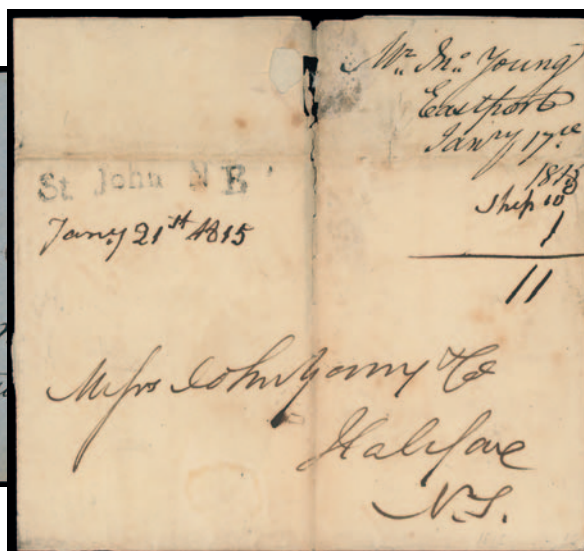 Mr. Jno. Young
Eastport
Jany 17th
1815
Ship 10
1
11
St John N B
Jany 21st 1815
Messrs John Young & Co
Halifax
N.S.